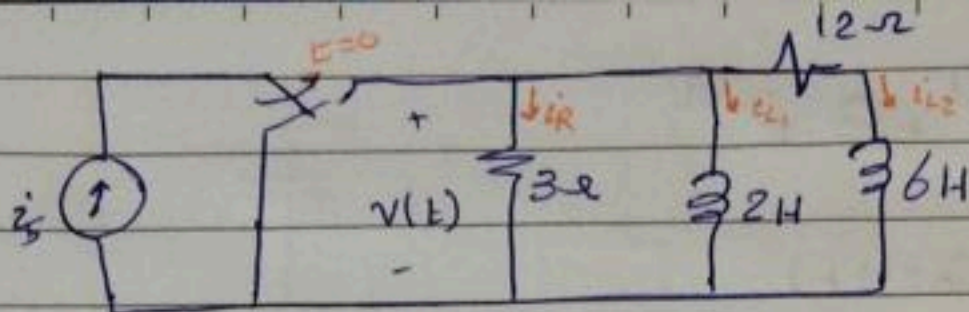 12Ω
t=0
+ iR iL1 iL2
is V(t) 3Ω 2H 6H
-